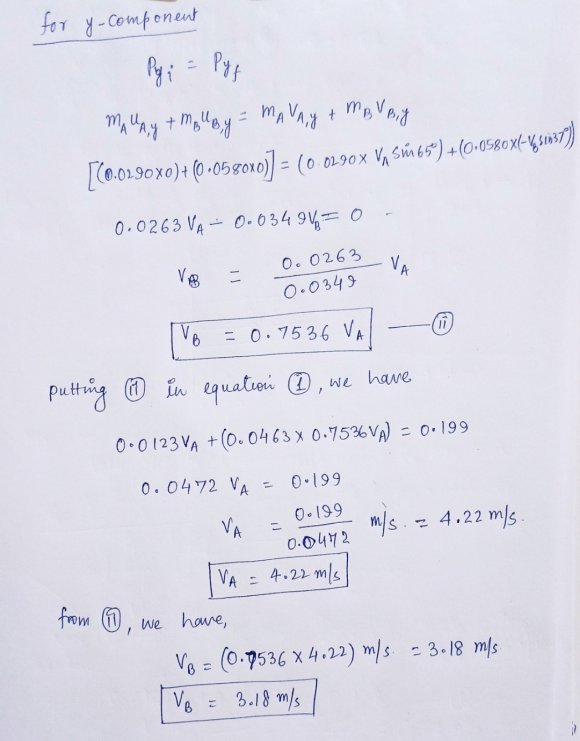 for y-component
Pyi = Pyf
mAuA,y + mBuB,y = mAVA,y + mBVB,y
[(0.0290×0)+(0.0580×0)] = (0.0290× VA Sin65°)+(0.0580×(-VB sin37°))
0.0263 VA - 0.0349VB = 0
VB = 0.0263/0.0349 VA
VB = 0.7536 VA — (ii)
putting (ii) in equation (1), we have
0.0123VA +(0.0463 × 0.7536VA) = 0.199
0.0472 VA = 0.199
VA = 0.199/0.0472 m/s. = 4.22 m/s.
VA = 4.22 m/s
from (ii), we have,
VB = (0.7536 × 4.22) m/s. = 3.18 m/s.
VB = 3.18 m/s